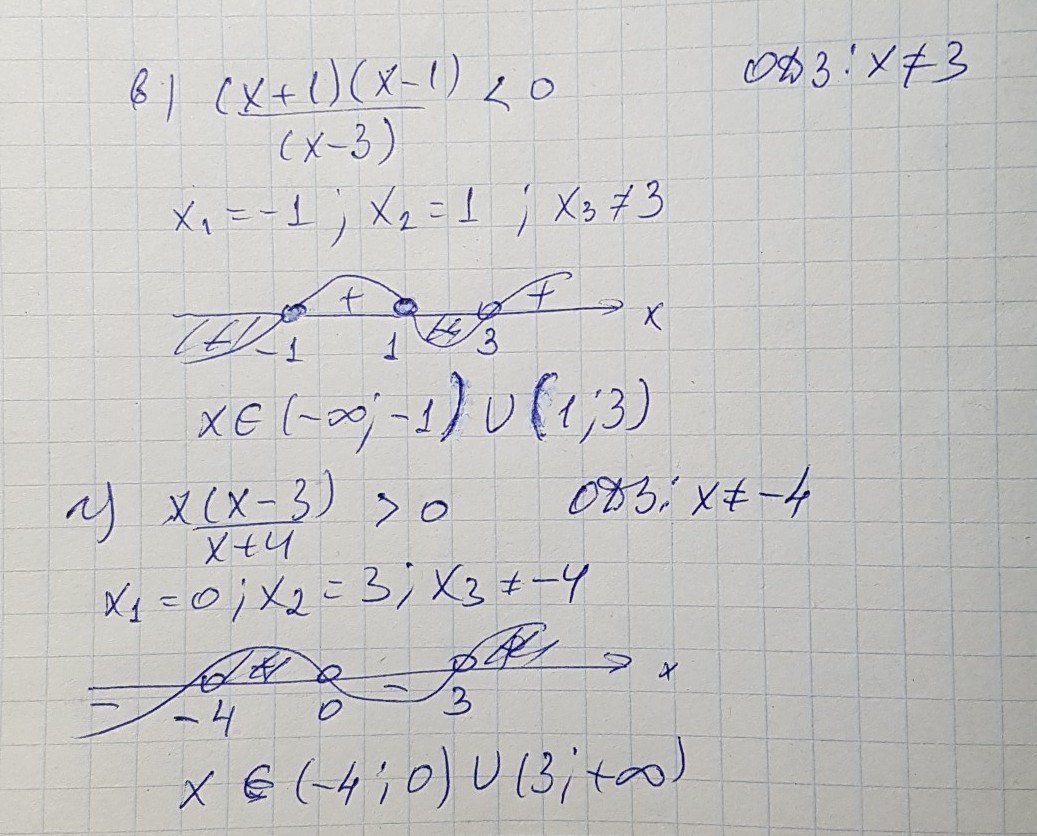 в) (x+1)(x-1) / (x-3) < 0 ОДЗ: x ≠ 3
x₁ = -1 ; x₂ = 1 ; x₃ ≠ 3
+ +
-1 1 3 x
x ∈ (-∞; -1) ∪ (1; 3)
г) x(x-3) / x+4 > 0 ОДЗ: x ≠ -4
x₁ = 0 ; x₂ = 3 ; x₃ ≠ -4
- + - +
-4 0 3 x
x ∈ (-4; 0) ∪ (3; +∞)